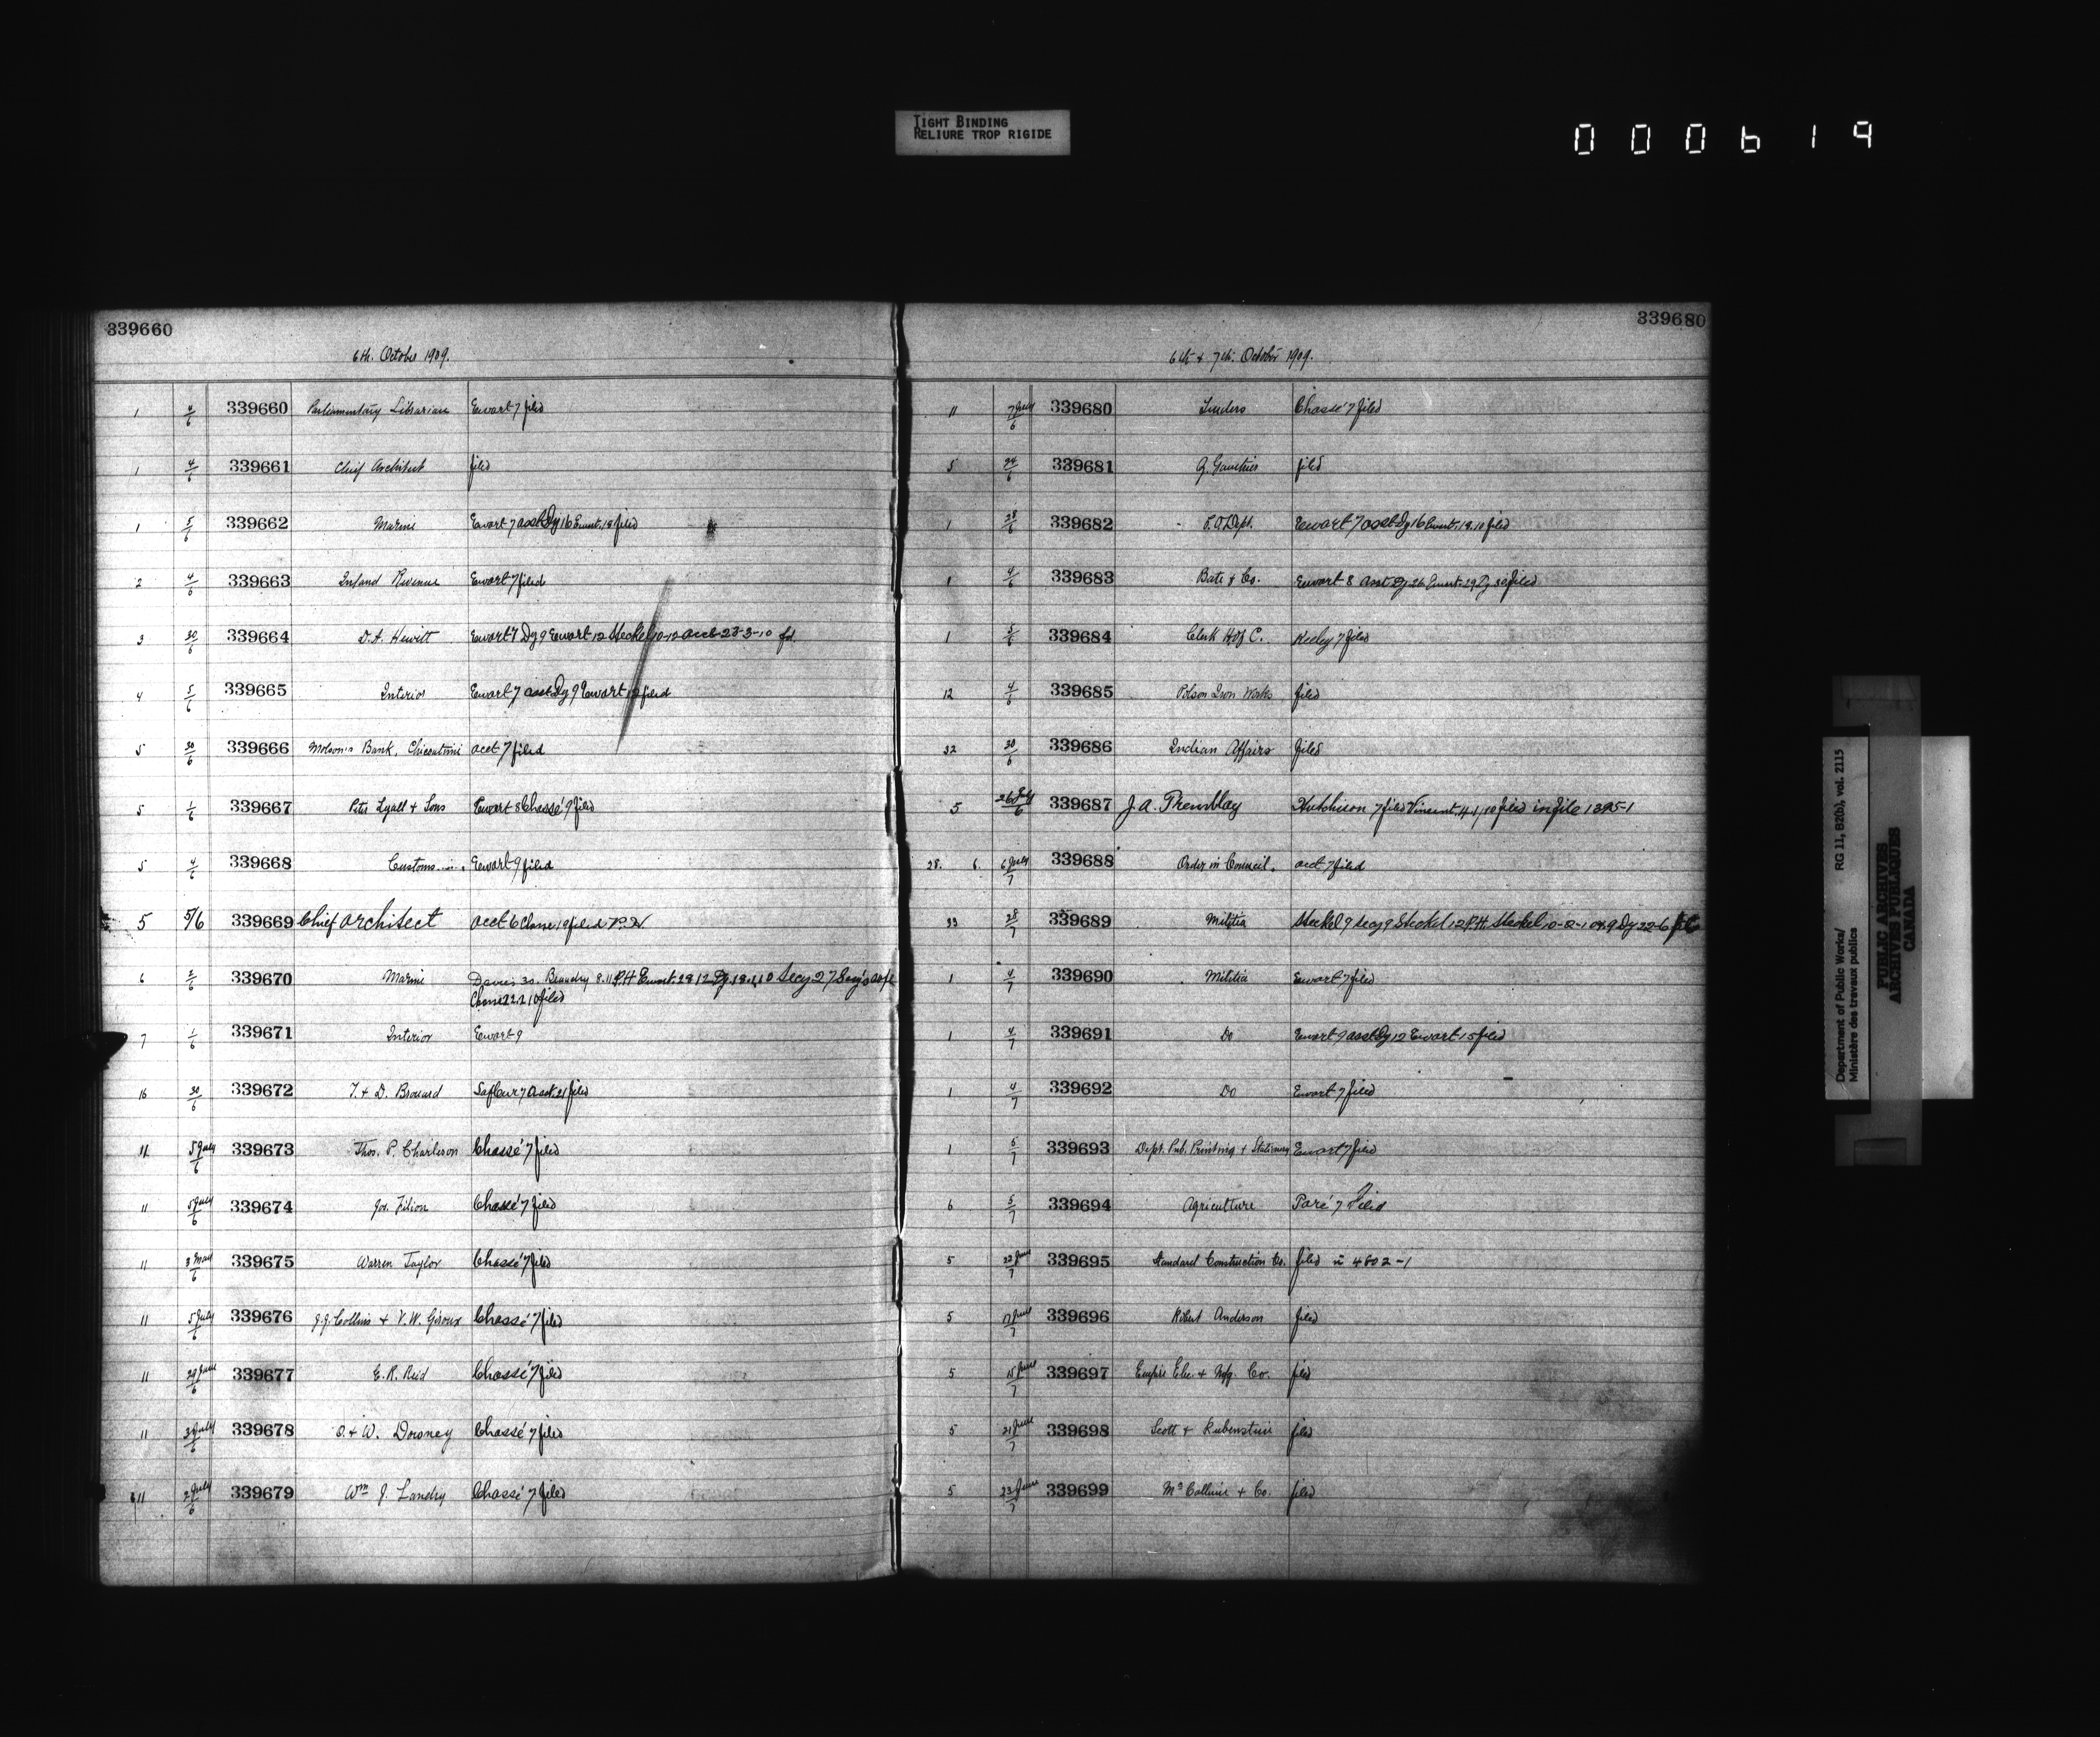 TIGHT BINDING
RELIURE TROP RIGIDE
000619
339660
6th. October 1909.
1 4/6 339660 Parliamentary Librarian Ewart 7 filed
1 4/6 339661 Chief Architect filed
1 5/6 339662 Marine Ewart 7 asst Dy 16 Ewart. 18 filed
2 4/6 339663 Inland Revenue Ewart 7 filed
3 30/6 339664 D.A. Hewitt Ewart 7 Dy 9 Ewart 12 Steckel 10-12 acct 23-3-10 fd.
4 5/6 339665 Interior Ewart 7 asst Dy 9 Ewart 12 filed
5 30/6 339666 Molson's Bank, Chicoutimi acct 7 filed
5 1/6 339667 Peter Lyall & Sons Ewart 8 Chassé 9 filed
5 4/6 339668 Customs Ewart 9 filed
5 5/6 339669 Chief Architect acct 6 19 filed
6 339670 Marine Davis 30. Beaudry 8.11 P.H Ewart. 28 12 Dy. 18.1.10 Secy 27
22.2.10 filed
7 1/6 339671 Interior Ewart 9
16 30/6 339672 T. & D. Brouard Lafleur 7 asst. 21 filed
11 5 July/6 339673 Thos. P. Charleson Chassé 7 filed
11 5 July/6 339674 Jos. Filion Chassé 7 filed
11 3 May/6 339675 Warren Taylor Chassé 7 filed
11 5 July/6 339676 J.J. Collins & V.W. Giroux Chassé 7 filed
11 29 June/6 339677 E.R. Reid Chassé 7 filed
11 July/6 339678 O. & W. Downey Chassé 7 filed
11 2 July/6 339679 Wm J. Landry Chassé 7 filed
339680
6th & 7th. October 1909.
11 7 July/6 339680 Tenders Chassé 7 filed
5 24/6 339681 Gauthier filed
1 28/6 339682 P.O. Dept. Ewart 7 asst Dy 16 Ewart. 18.10 filed
1 4/6 339683 Bate & Co. Ewart 8 Asst Dy 26 Ewart. 29 Dy 30 filed
1 5/6 339684 Clerk H of C. Keeley 7 filed
12 4/6 339685 Polson Iron Works filed
32 30/6 339686 Indian Affairs filed
5 26 July/6 339687 J A. Tremblay Hutchison 7 filed Vincent. 4/1/10 filed in file 1395-1
28. 6. 6 July/7 339688 Order in Council. acct 7 filed
33 28/7 339689 Militia Steckel 9 Secy 9 Steckel 12 P.H. Steckel 10-2-10 Dy 22-6
1 4/7 339690 Militia Ewart 7 filed
1 4/7 339691 Do Ewart 9 asst Dy 12 Ewart 15 filed
1 4/7 339692 Do Ewart 7 filed
1 5/7 339693 Dept. Pub. Printing & Stationery Ewart 7 filed
6 5/7 339694 Agriculture Paré 7 Filed
5 22 June/7 339695 Standard Construction Co. filed in 4802-1
5 17 June/7 339696 Robert Anderson filed
5 15 June/7 339697 Empire Elec. & Mfg. Co. filed
5 21 June/7 339698 Scott & Rubenstein filed
5 23 June/7 339699 & Co. filed
Department of Public Works/ RG 11, B2(b), vol. 2115
Ministère des travaux publics
PUBLIC ARCHIVES
ARCHIVES PUBLIQUES
CANADA